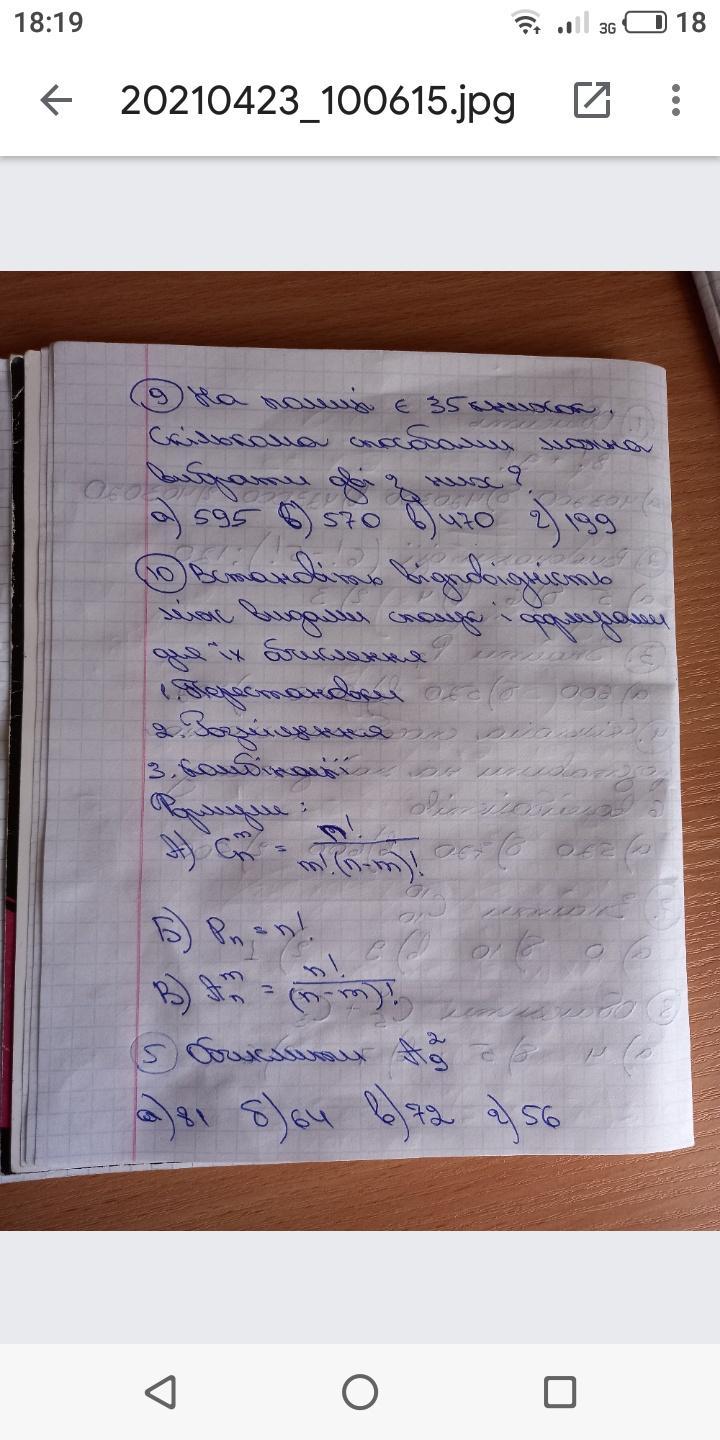 18:19
3G
18
20210423_100615.jpg
9 На полиці є 35 книжок.
Скількома способами можна
вибрати дві з них?
а) 595 б) 570 в) 470 г) 199
10 Встановіть відповідність
між видами сполук і формулами
для їх обчислення
1. Перестановки
2. Розміщення
3. Комбінації
Формули:
А) Cₙᵐ = n! / m!(n-m)!
Б) Pₙ = n!
В) Aₙᵐ = n! / (n-m)!
5 Обчислити A₉²
а) 81 б) 64 в) 72 г) 56